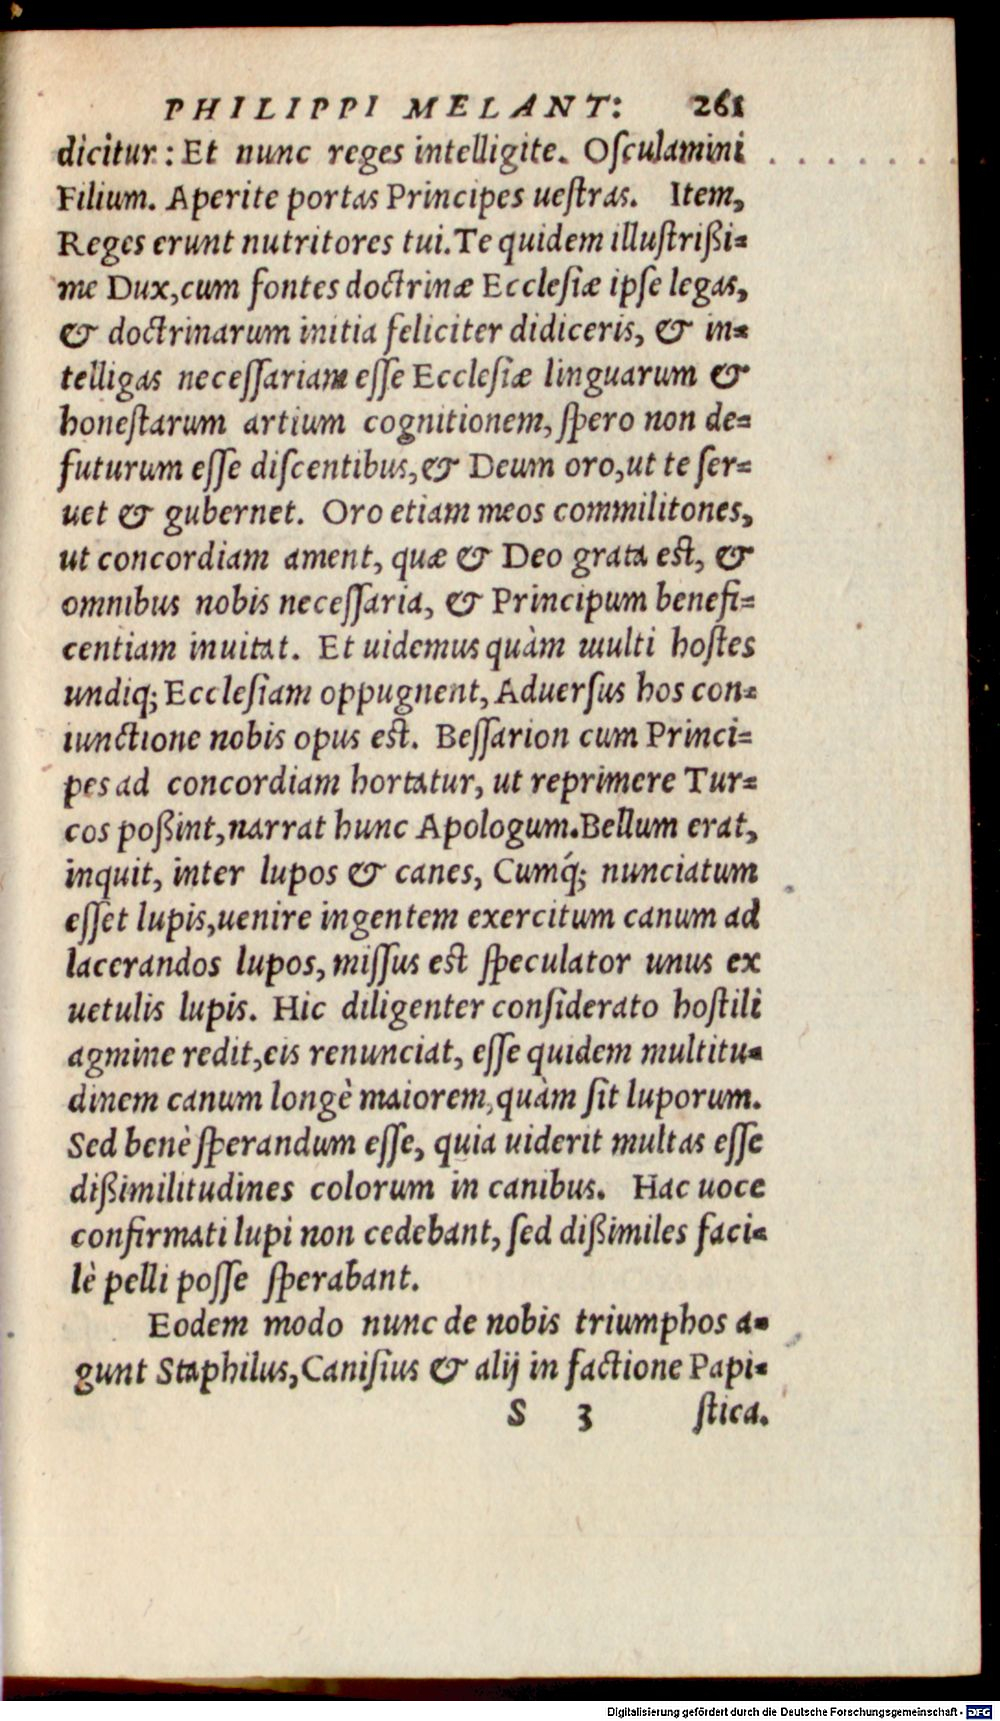 PHILIPPI MELANT: 261
dicitur: Et nunc reges intelligite. Osculamini
Filium. Aperite portas Principes uestras. Item,
Reges erunt nutritores tui. Te quidem illustrißi=
me Dux, cum fontes doctrinæ Ecclesiæ ipse legas,
& doctrinarum initia feliciter didiceris, & in=
telligas necessariam esse Ecclesiæ linguarum &
honestarum artium cognitionem, spero non de=
futurum esse discentibus, & Deum oro, ut te ser=
uet & gubernet. Oro etiam meos commilitones,
ut concordiam ament, quæ & Deo grata est, &
omnibus nobis necessaria, & Principum benefi=
centiam inuitat. Et uidemus quàm multi hostes
undiq; Ecclesiam oppugnent, Aduersus hos con=
iunctione nobis opus est. Bessarion cum Princi=
pes ad concordiam hortatur, ut reprimere Tur=
cos poßint, narrat hunc Apologum. Bellum erat,
inquit, inter lupos & canes, Cumq́; nunciatum
esset lupis, uenire ingentem exercitum canum ad
lacerandos lupos, missus est speculator unus ex
uetulis lupis. Hic diligenter considerato hostili
agmine redit, eis renunciat, esse quidem multitu=
dinem canum longè maiorem, quàm sit luporum.
Sed benè sperandum esse, quia uiderit multas esse
dißimilitudines colorum in canibus. Hac uoce
confirmati lupi non cedebant, sed dißimiles faci=
lè pelli posse sperabant.
Eodem modo nunc de nobis triumphos a=
gunt Staphilus, Canisius & alij in factione Papi=
S 3 stica.
Digitalisierung gefördert durch die Deutsche Forschungsgemeinschaft - DFG